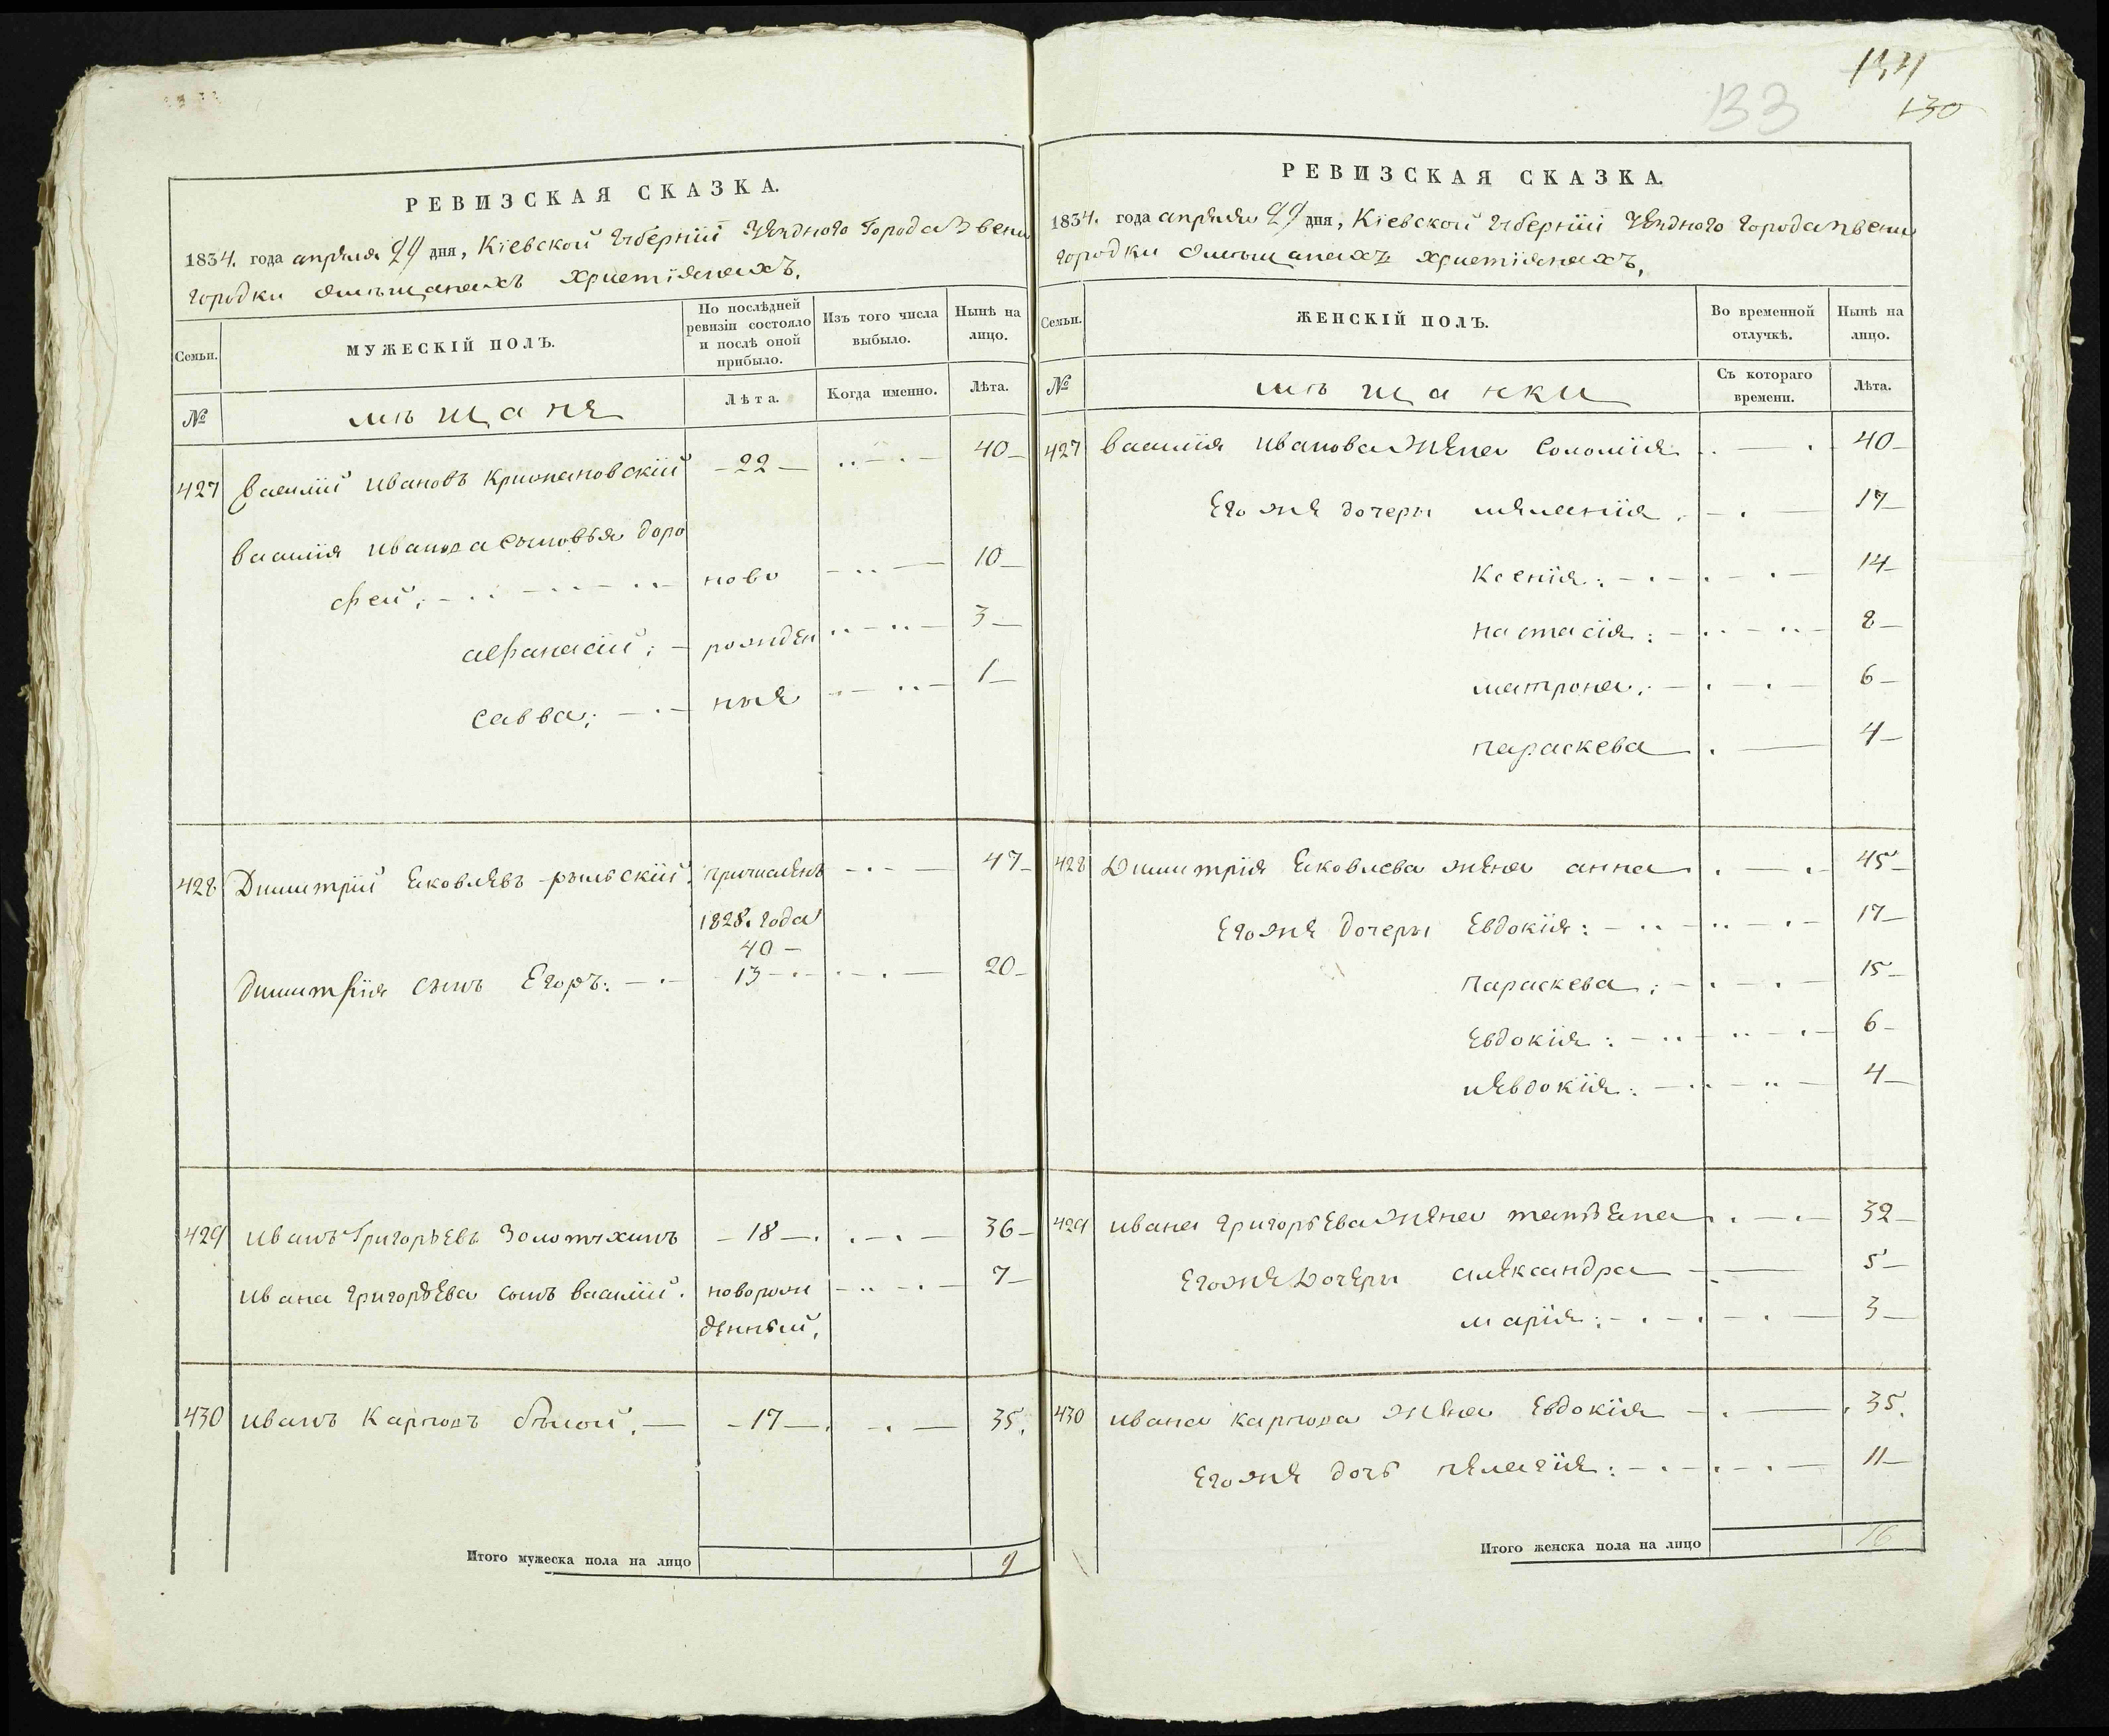 РЕВИЗСКАЯ СКАЗКА.
1834. года апреля 29 дня, Кіевской Губерніи Уезднаго Города Звени
городки омѣщанахъ христіянахъ,
Семьи.
МУЖЕСКІЙ ПОЛЪ.
По послѣдней ревизіи состояло и послѣ оной прибыло.
Изъ того числа выбыло.
Нынѣ на лицо.
№
мѣщане
Лѣта.
Когда именно.
Лѣта.
427 Василій Ивановъ Крижановскій 22 40
Василія Иванова сыновъя Доро
фей, ново 10
афанасій; рожден 3
савва; ныя 1
428 Димитрій Яковлевъ рыльскій. причисленъ 47
1828. года
40
Димитрія сынъ Егоръ: 13 20
429 Иванъ Григорьевъ Золотухинъ 18 36
Ивана Григорьева сынъ василій. новорож 7
денный,
430 Иванъ Карповъ бѣлой. 17 35.
Итого мужеска пола на лицо 9
134
133
130
РЕВИЗСКАЯ СКАЗКА.
1834. года апреля 29 дня, Кіевской Губерніи Уезднаго города звени
городки омѣщанахъ христіянахъ,
Семьи.
ЖЕНСКІЙ ПОЛЪ.
Во временной отлучкѣ.
Нынѣ на лицо.
№
мѣщанки
Съ котораго времени.
Лѣта.
427 Василія Иванова Жена Соломія 40
Его же дочери меланія 17
Ксенія: 14
настасія: 8
матрона; 6
параскева 4
428 Димитрія Яковлева жена анна 45
Его же дочери Евдокія: 17
Параскева; 15
Евдокія: 6
иевдокія: 4
429 Ивана Григорьева Жена татьяна 32
Его же Дочери александра 5
марія: 3
430 Ивана Карпова Жена Евдокія 35.
Его же дочь пелагія: 11
Итого женска пола на лицо 16